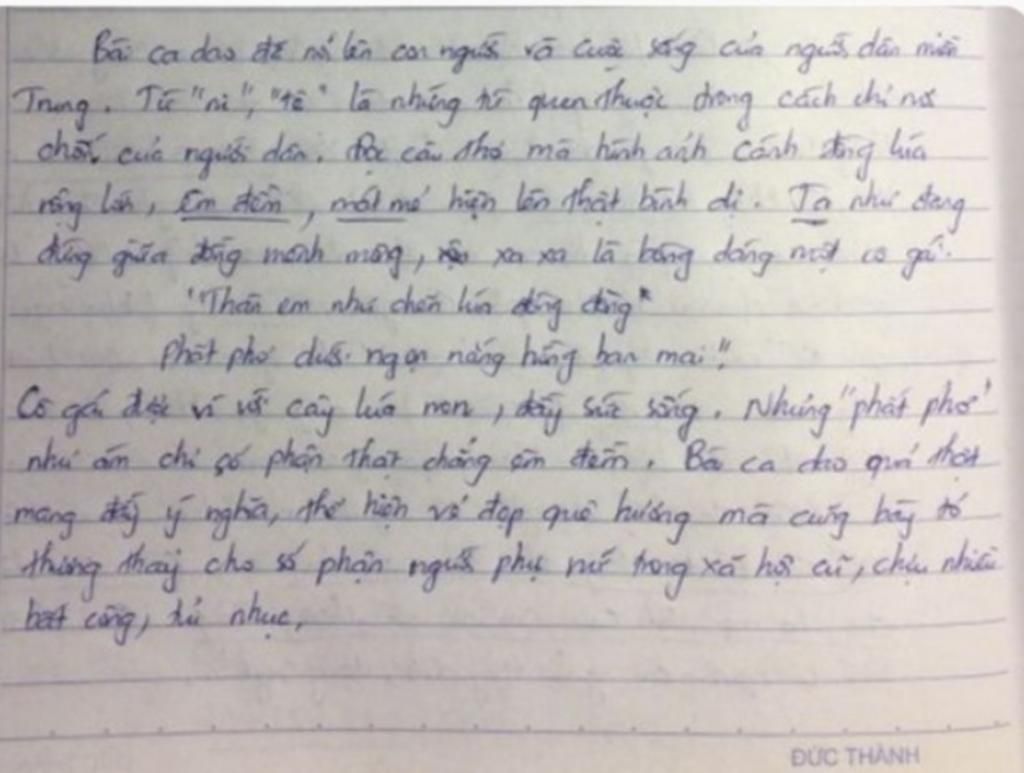 Bài ca dao đã nói lên con người và cuộc sống của người dân miền
Trung. Từ "ni", "tê" là những từ quen thuộc trong cách chỉ nơi
chốn của người dân. Đọc câu thơ mà hình ảnh cánh đồng lúa
rộng lớn, êm đềm, mát mẻ hiện lên thật bình dị. Ta như đang
đứng giữa đồng mênh mông, xa xa là bóng dáng một cô gái.
"Thân em như chẽn lúa đòng đòng"
Phất phơ dưới ngọn nắng hồng ban mai."
Cô gái được ví với cây lúa non, đầy sức sống. Nhưng "phất phơ"
như ám chỉ số phận thật chẳng êm đềm. Bài ca dao quả thật
mang đầy ý nghĩa, thể hiện vẻ đẹp quê hương mà cũng bày tỏ
thương thay cho số phận người phụ nữ trong xã hội cũ, chịu nhiều
bất công, tủi nhục,
ĐỨC THÀNH